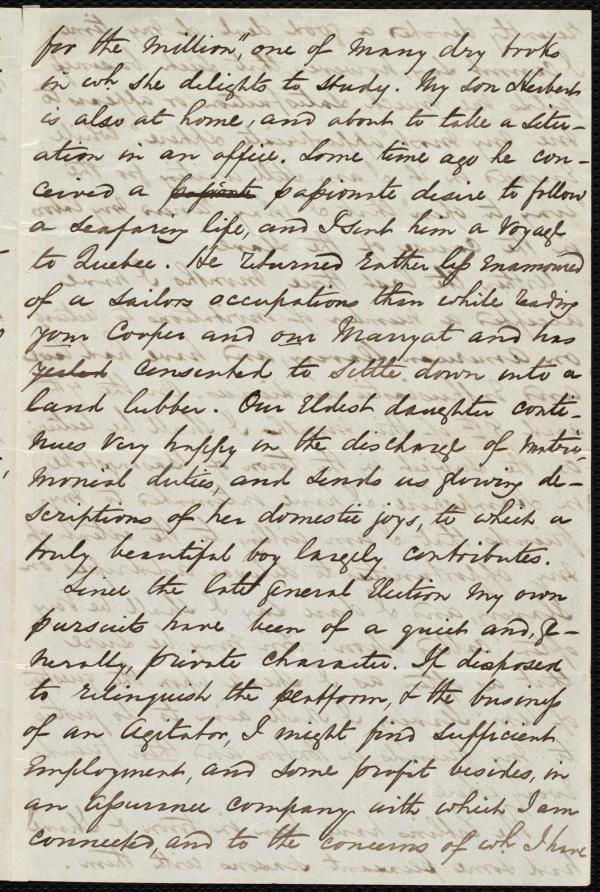 for the million", one of many dry books
in wh. she delights to study. My son Herbert
is also at home, and about to take a situ-
ation in an office. Some time ago he con-
ceived a passionate desire to follow
a seafaring life, and I sent him a voyage
to Quebec. He returned rather less enamoured
of a sailors occupations than while reading
your Cooper and our Marryat and has
consented to settle down into a
land lubber. Our eldest daughter conti-
nues very happy in the discharge of matri-
monial duties, and sends us glowing de-
scriptions of her domestic joys, to which a
truly beautiful boy largely contributes.
Since the late general election my own
pursuits have been of a quiet and, ge-
nerally, private character. If disposed
to relinquish the platform, & the business
of an Agitator, I might find sufficient
employment, and some profit besides, in
an assurance company with which I am
connected, and to the concerns of wh. I have